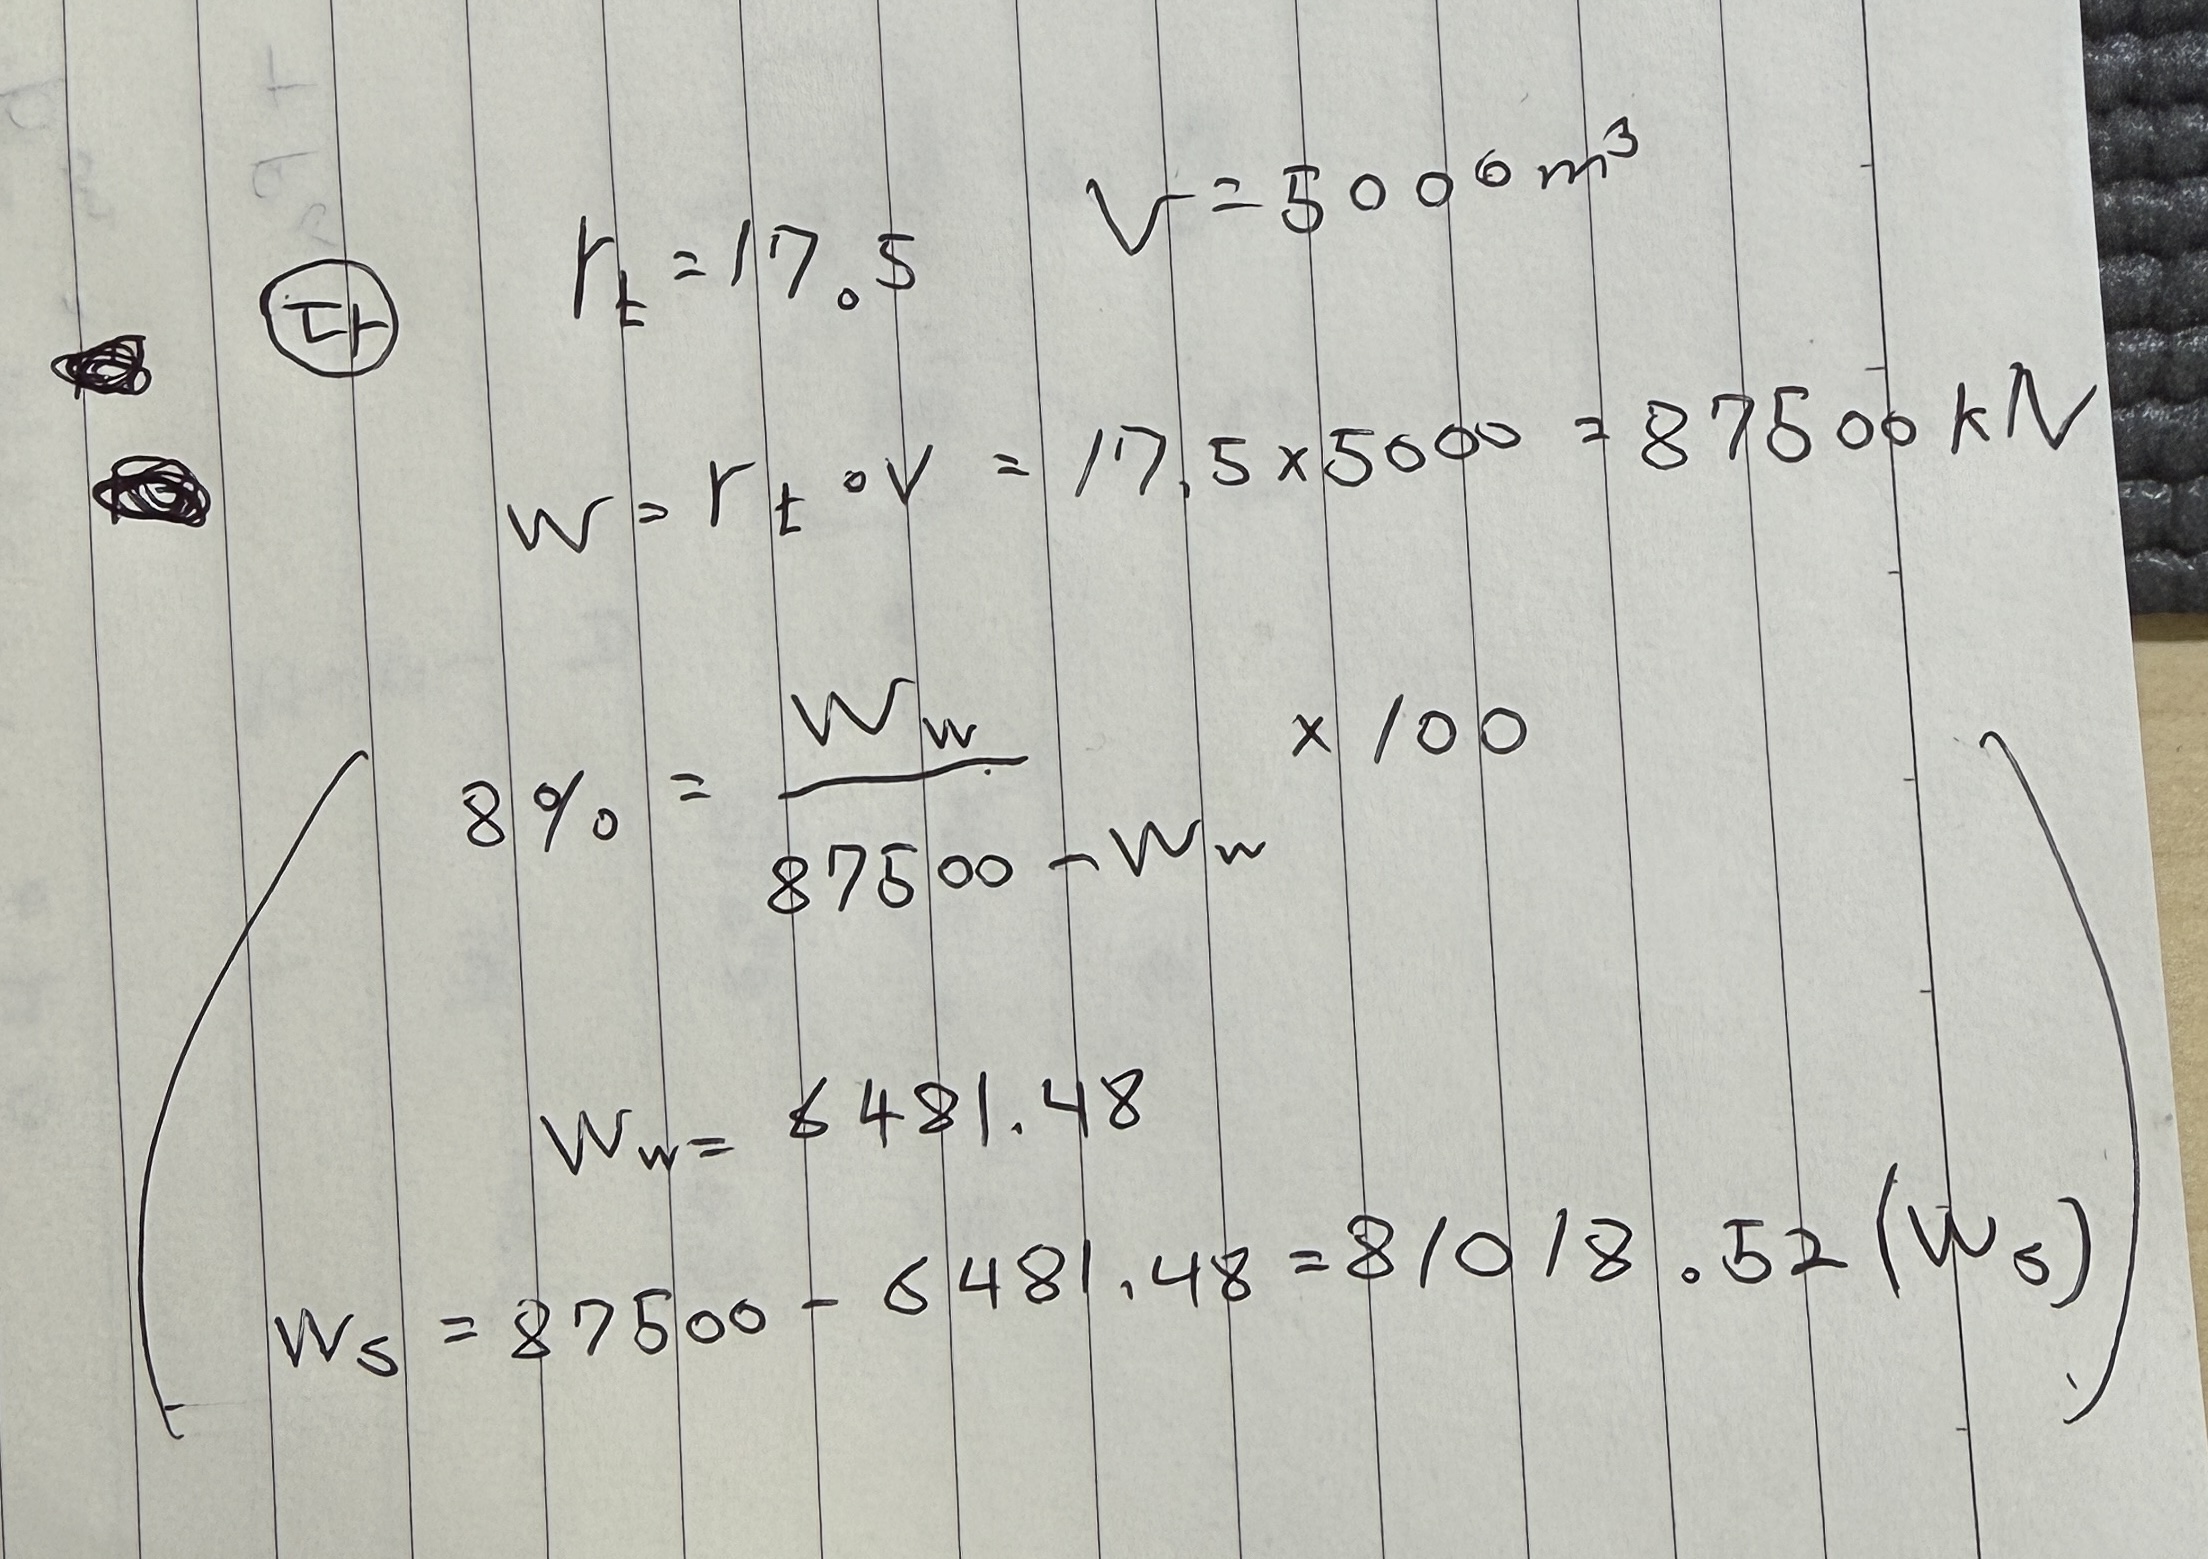 V = 5000 m³
㉰ r_t = 17.5
W = r_t · V = 17.5 × 5000 = 87500 kN
8% = W_w / (87500 - W_w) × 100
W_w = 6481.48
W_s = 87500 - 6481.48 = 81018.52 (W_s)